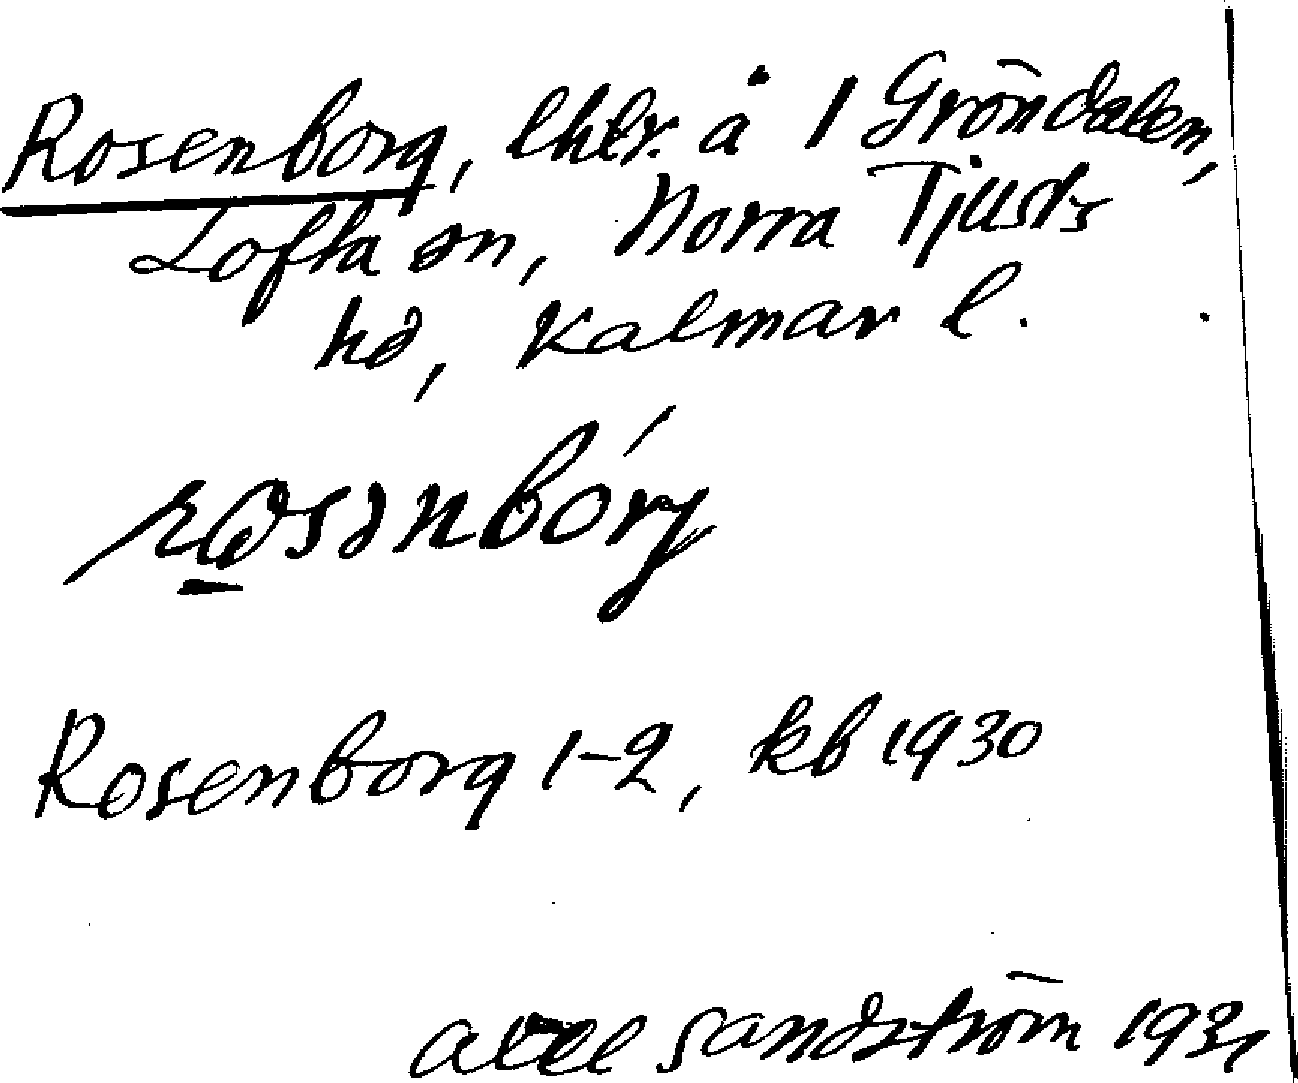 Rosenborg, lhlr. å 1 Gröndalen,
Lofta sn, Norra Tjusts
hd, Kalmar l.
Rosenborg 1-2, kb 1930
Axel Sandström 1931